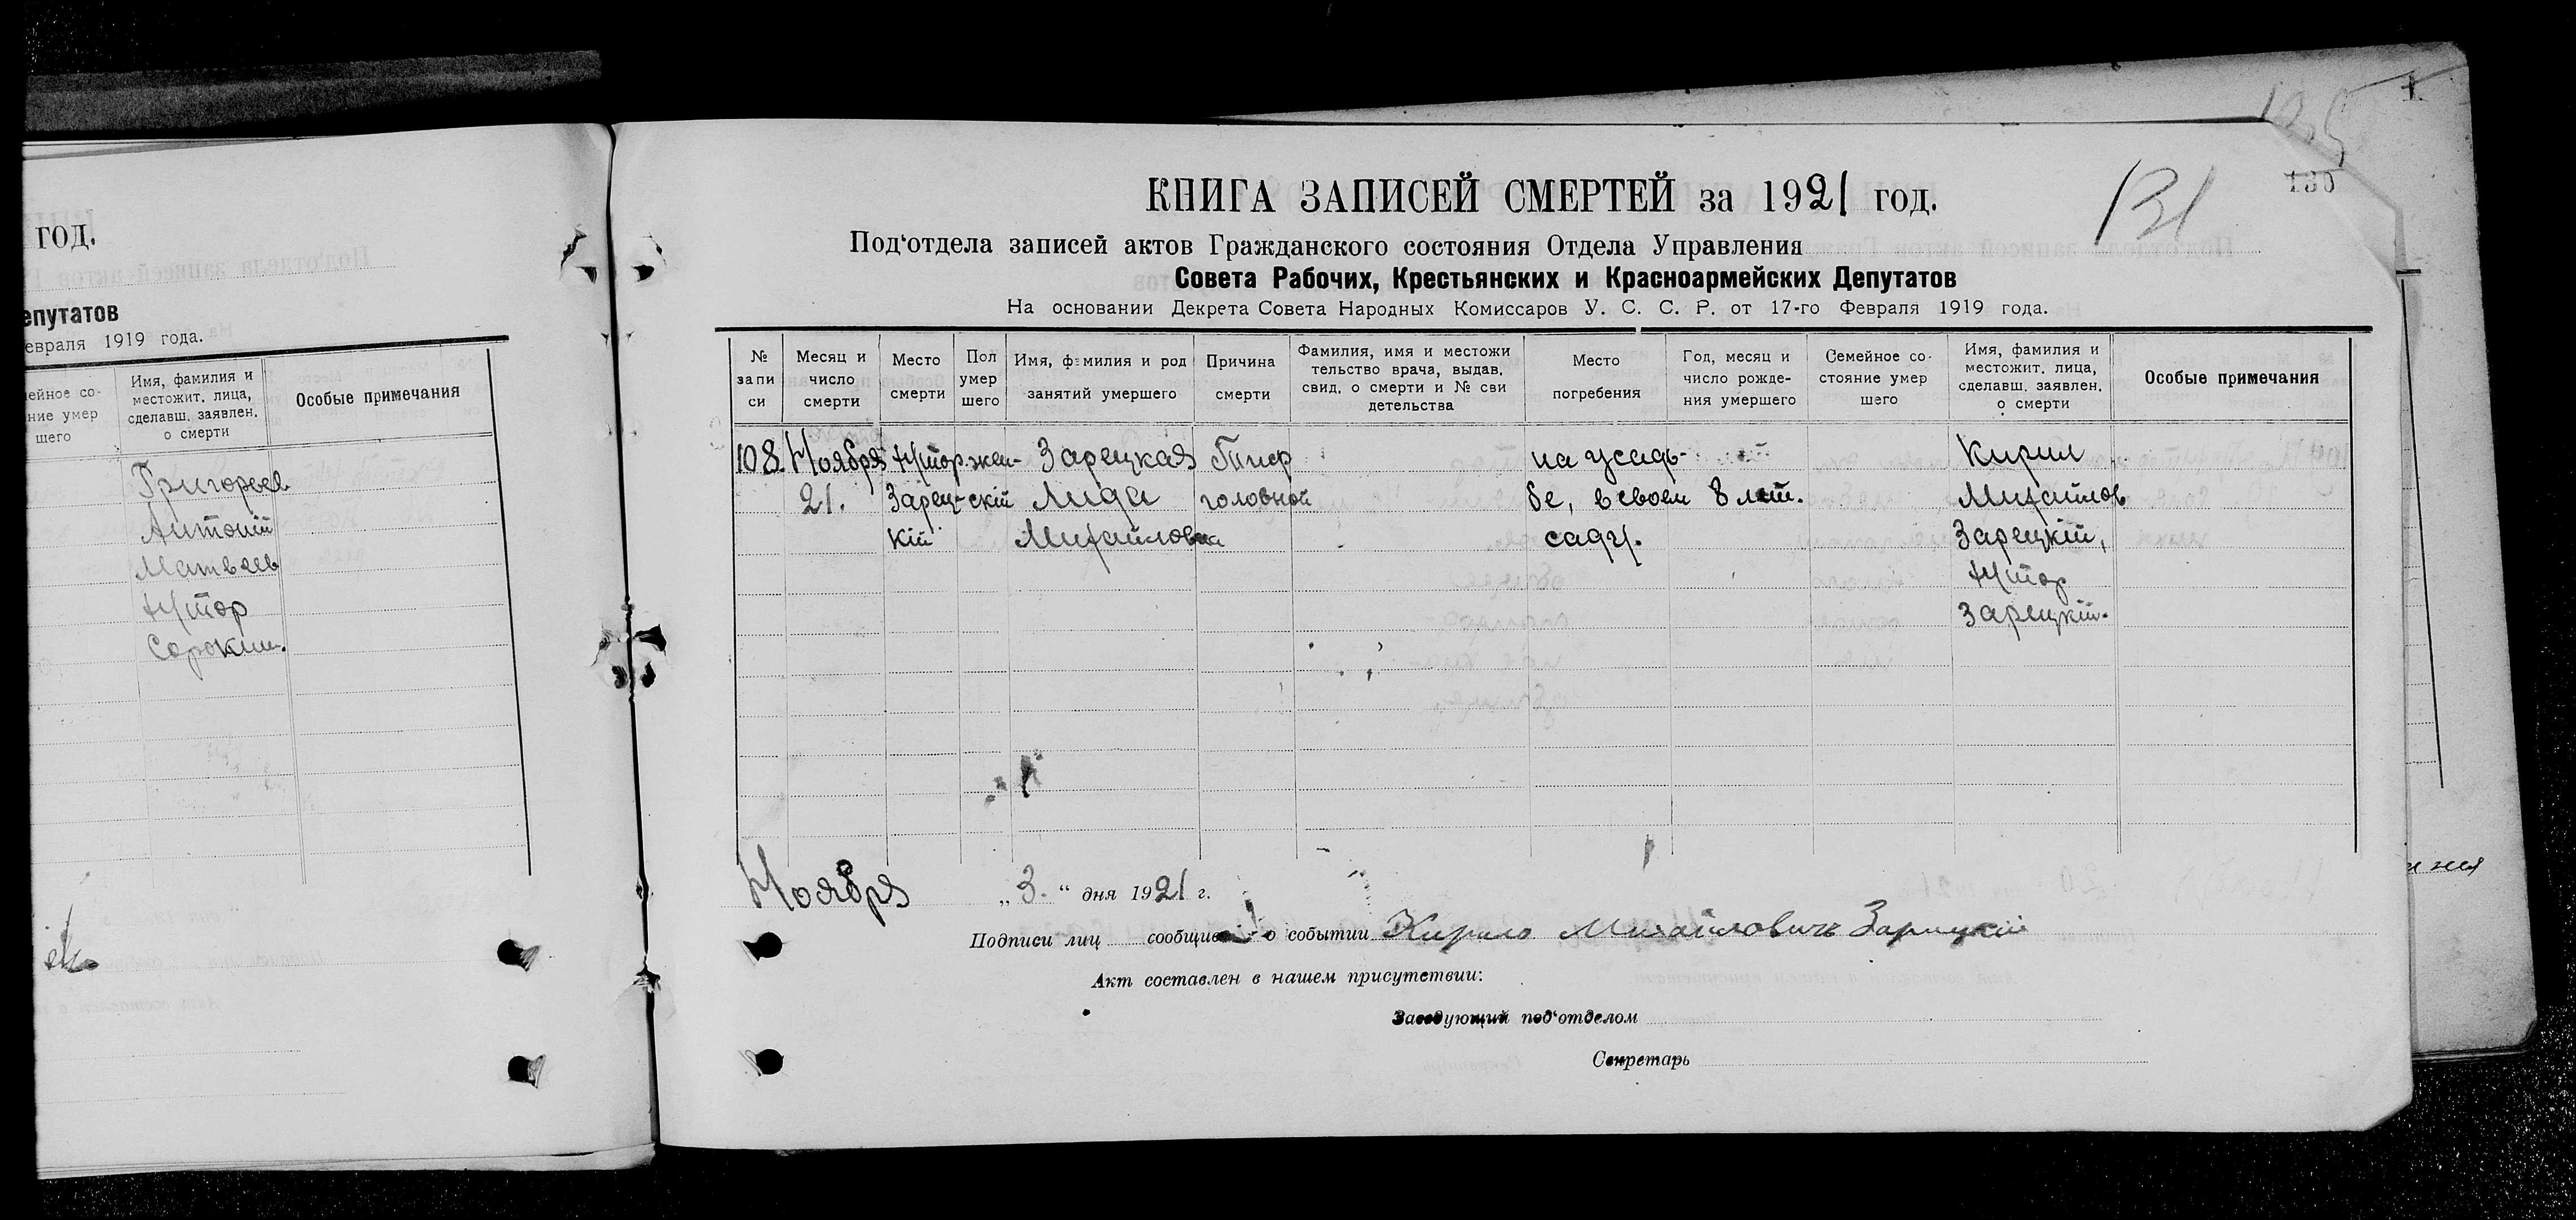 год.
епутатов
евраля 1919 года.
ейное со-
ние умер
шего
Имя, фамилия и
местожит. лица,
сделавш. заявлен.
о смерти
Особые примечания
Григорьев
Антоній
Матвеев
Хутор
Сорокин.
125
130
131
КНИГА ЗАПИСЕЙ СМЕРТЕЙ за 1921 год.
Под‘отдела записей актов Гражданского состояния Отдела Управления
Совета Рабочих, Крестьянских и Красноармейских Депутатов
На основании Декрета Совета Народных Комиссаров У. С. С. Р. от 17-го Февраля 1919 года.
№
запи
си
Месяц и
число
смерти
Место
смерти
Пол
умер
шего
Имя, фамилия и род
занятий умершего
Причина
смерти
Фамилия, имя и местожи
тельство врача, выдав.
свид. о смерти и № сви
детельства
Место
погребения
Год, месяц и
число рожде-
ния умершего
Семейное со-
стояние умер
шего
Имя, фамилия и
местожит. лица,
сделавш. заявлен.
о смерти
Особые примечания
108. Ноября Хутор жен- Зарецкая Тиф на усадь- Кирил
21. Зарец- скій Лида головной бе, в своем 8 лет. Михайлов
кій Михайловна саду. Зарецкій,
Хутор
Зарецкій.
Ноября „3.“ дня 1921 г.
Подписи лиц сообщив о событии Кирило Михайловичъ Зарицкій
Акт составлен в нашем присутствии:
Заведующий под‘отделом
Секретарь